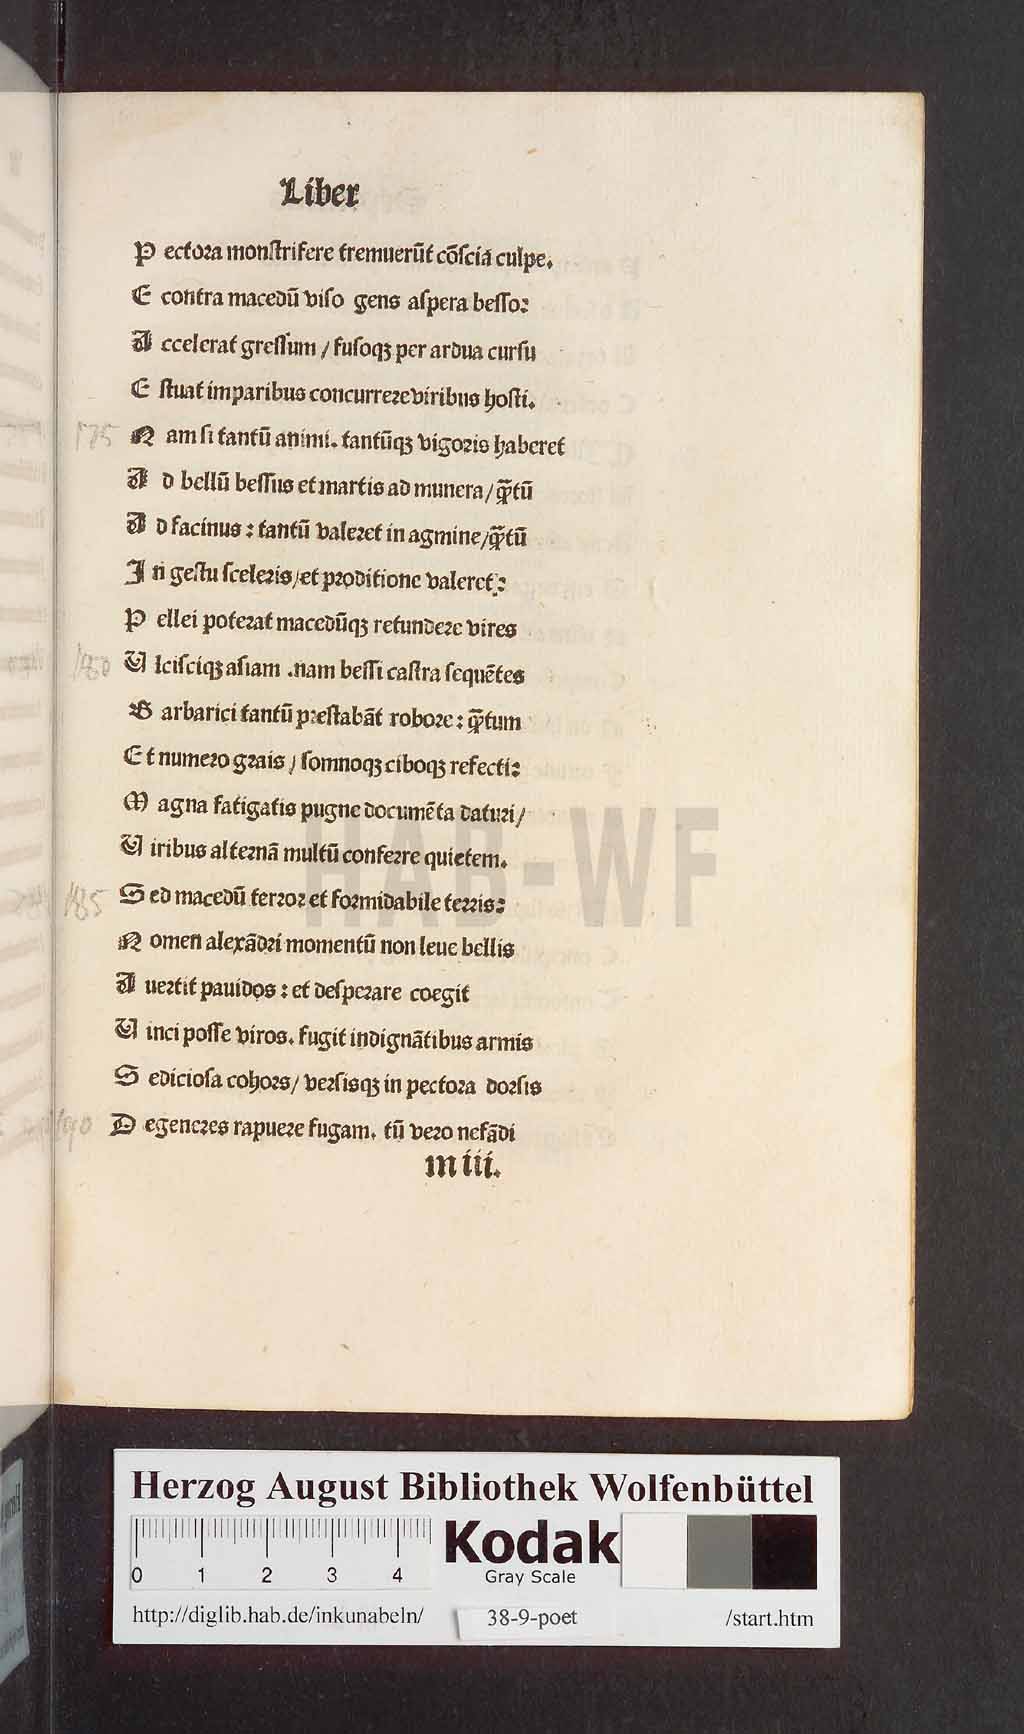 Liber
P ectora monstrifere tremuerūt cōsciā culpe.
E contra macedū viso gens aspera besso:
A ccelerat gressum / fusoqꝫ per ardua cursu
E stuat imparibus concurrere viribus hosti.
175 N am si tantū animi. tantūqꝫ vigoris haberet
A d bellū bessus et martis ad munera / q̄tū
A d facinus : tantū valeret in agmine / q̄tū
I n gestu sceleris / et proditione valeret :
P ellei poterat macedūqꝫ retundere vires
180 U lcisciqꝫ asiam . nam bessi castra sequētes
B arbarici tantū prestabāt robore : q̄tum
E t numero grais / somnoqꝫ ciboqꝫ refecti:
M agna fatigatis pugne documēta daturi /
U iribus alternā multū conferre quietem.
185 S ed macedū terror et formidabile terris:
N omen alexādri momentū non leue bellis
A uertit pauidos : et desperare coegit
U inci posse viros. fugit indignātibus armis
S ediciosa cohors / versisqꝫ in pectora dorsis
190 D egeneres rapuere fugam. tū vero nefādi
m iii.
HAB-WF
Herzog August Bibliothek Wolfenbüttel
0 1 2 3 4
Kodak
Gray Scale
http://diglib.hab.de/inkunabeln/ 38-9-poet /start.htm